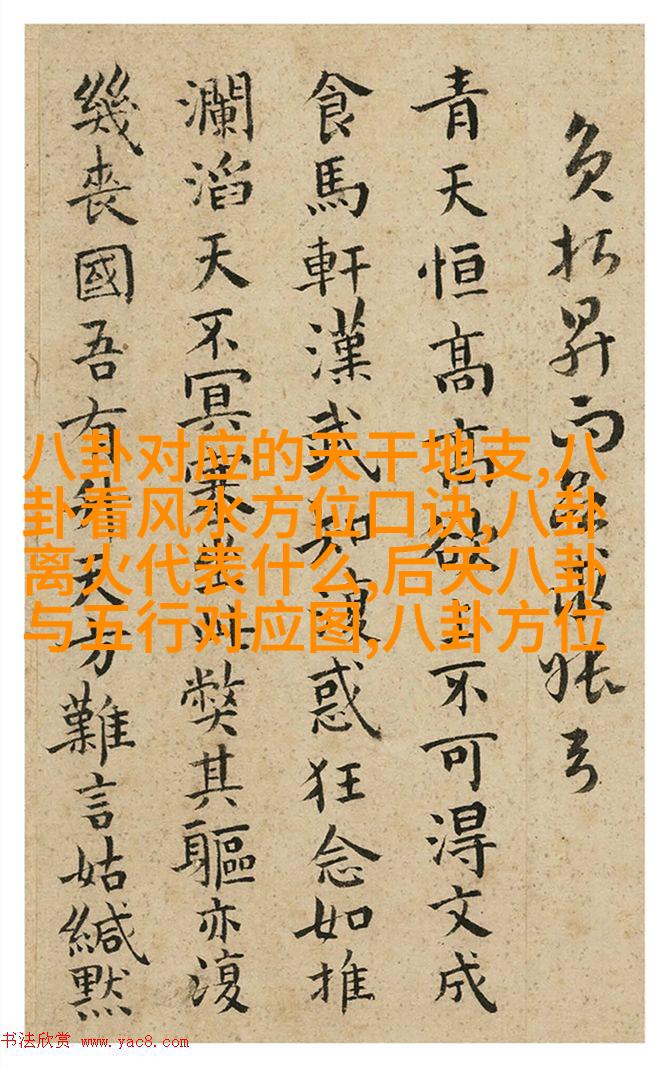 八卦对应的天干地支,八
卦看风水方位口诀,八卦
离火代表什么,后天八卦
与五行对应图,八卦方位
昇而張弓
青天恒高高欲上不可得文成
食馬軒漢武却復惑狂念如推
瀾滔天不冥弊其軀亦復
幾喪國吾有升天方難言姑緘默
书法欣赏 www.yac8.com